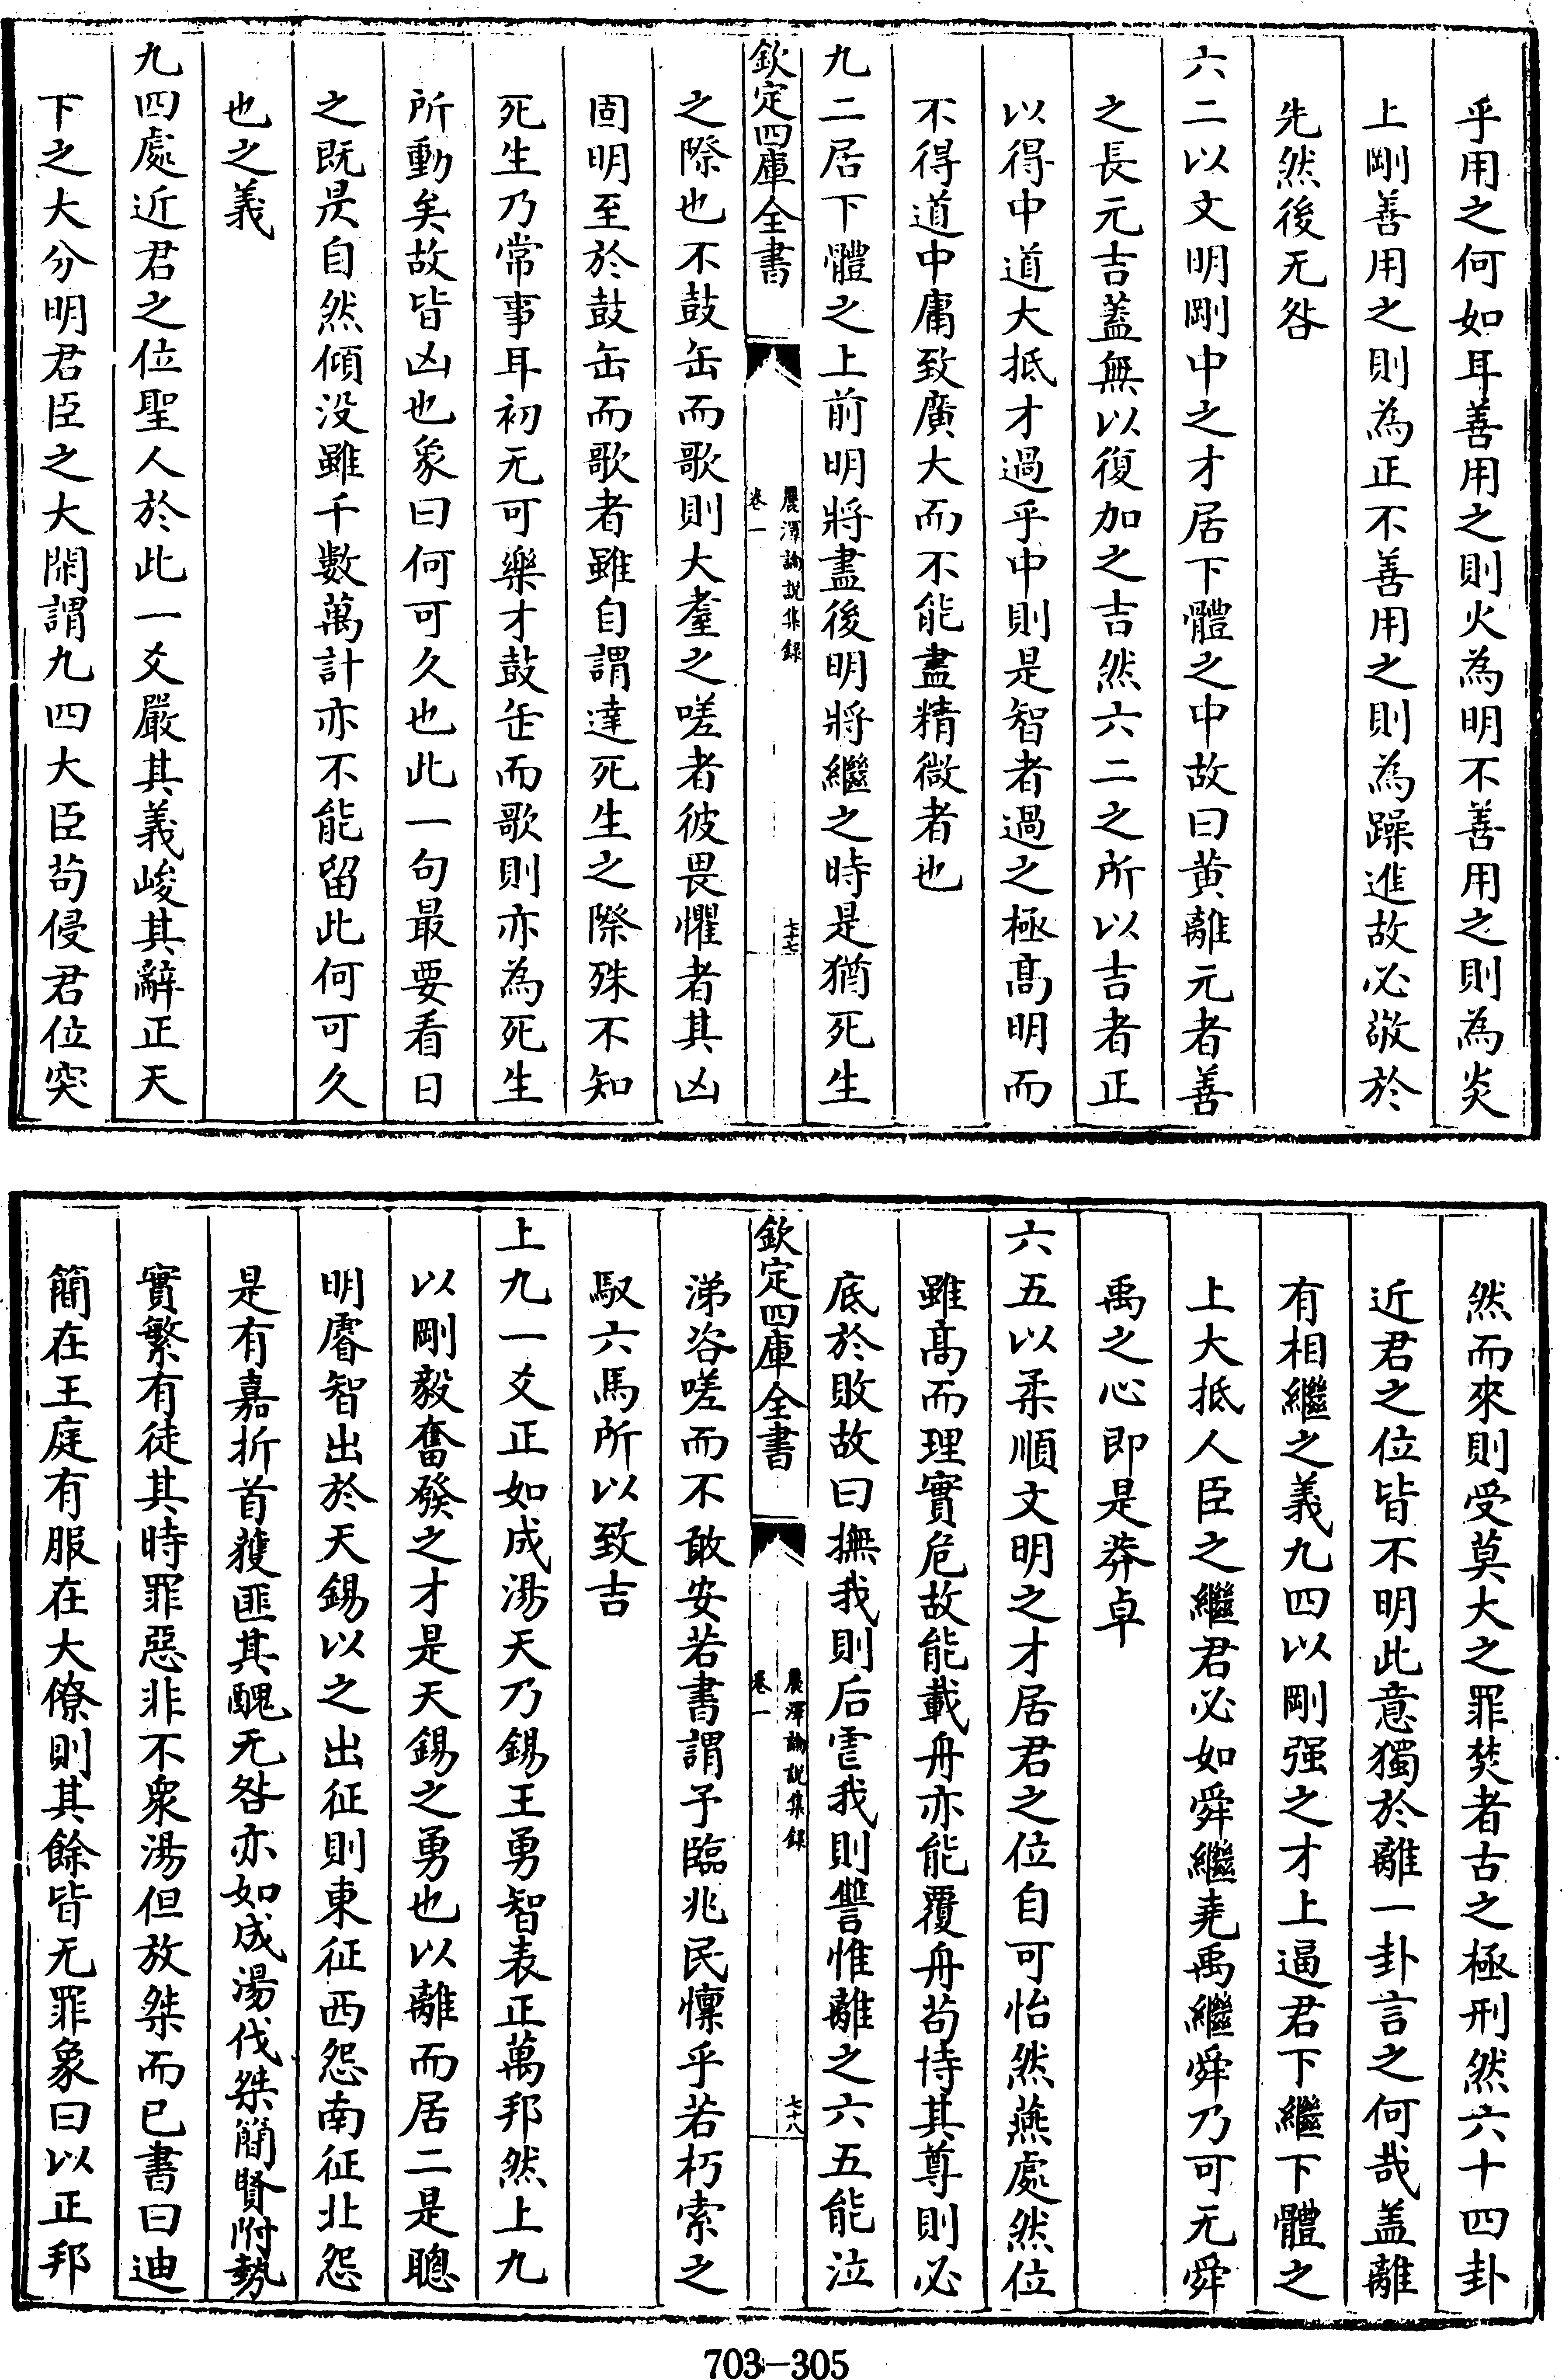 乎用之何如耳善用之則火為明不善用之則為炎
上剛善用之則為正不善用之則為躁進故必敬於
先然後无咎
六二以文明剛中之才居下體之中故曰黄離元者善
之長元吉蓋無以復加之吉然六二之所以吉者正
以得中道大抵才過乎中則是智者過之極髙明而
不得道中庸致廣大而不能盡精微者也
九二居下體之上前明將盡後明將繼之時是猶死生
欽定四庫全書
麗澤論說集録
卷一
七十七
之際也不鼓缶而歌則大耋之嗟者彼畏懼者其凶
固明至於鼓缶而歌者雖自謂達死生之際殊不知
死生乃常事耳初无可樂才鼓缶而歌則亦為死生
所動矣故皆凶也象曰何可久也此一句最要看日
之既昃自然傾没雖千數萬計亦不能留此何可久
也之義
九四處近君之位聖人於此一爻嚴其義峻其辭正天
下之大分明君臣之大閑謂九四大臣苟侵君位突
然而來則受莫大之罪焚者古之極刑然六十四卦
近君之位皆不明此意獨於離一卦言之何哉盖離
有相繼之義九四以剛强之才上逼君下繼下體之
上大抵人臣之繼君必如舜繼堯禹繼舜乃可无舜
禹之心即是莽卓
六五以柔順文明之才居君之位自可怡然燕處然位
雖髙而理實危故能載舟亦能覆舟苟恃其尊則必
底於敗故曰撫我則后虐我則讐惟離之六五能泣
欽定四庫全書
麗澤論說集録
卷一
七十八
涕咨嗟而不敢安若書謂予臨兆民懍乎若朽索之
馭六馬所以致吉
上九一爻正如成湯天乃錫王勇智表正萬邦然上九
以剛毅奮發之才是天錫之勇也以離而居二是聰
明睿智出於天錫以之出征則東征西怨南征北怨
是有嘉折首獲匪其醜无咎亦如成湯伐桀簡賢附勢
實繁有徒其時罪惡非不衆湯但放桀而已書曰迪
簡在王庭有服在大僚則其餘皆无罪象曰以正邦
703-305